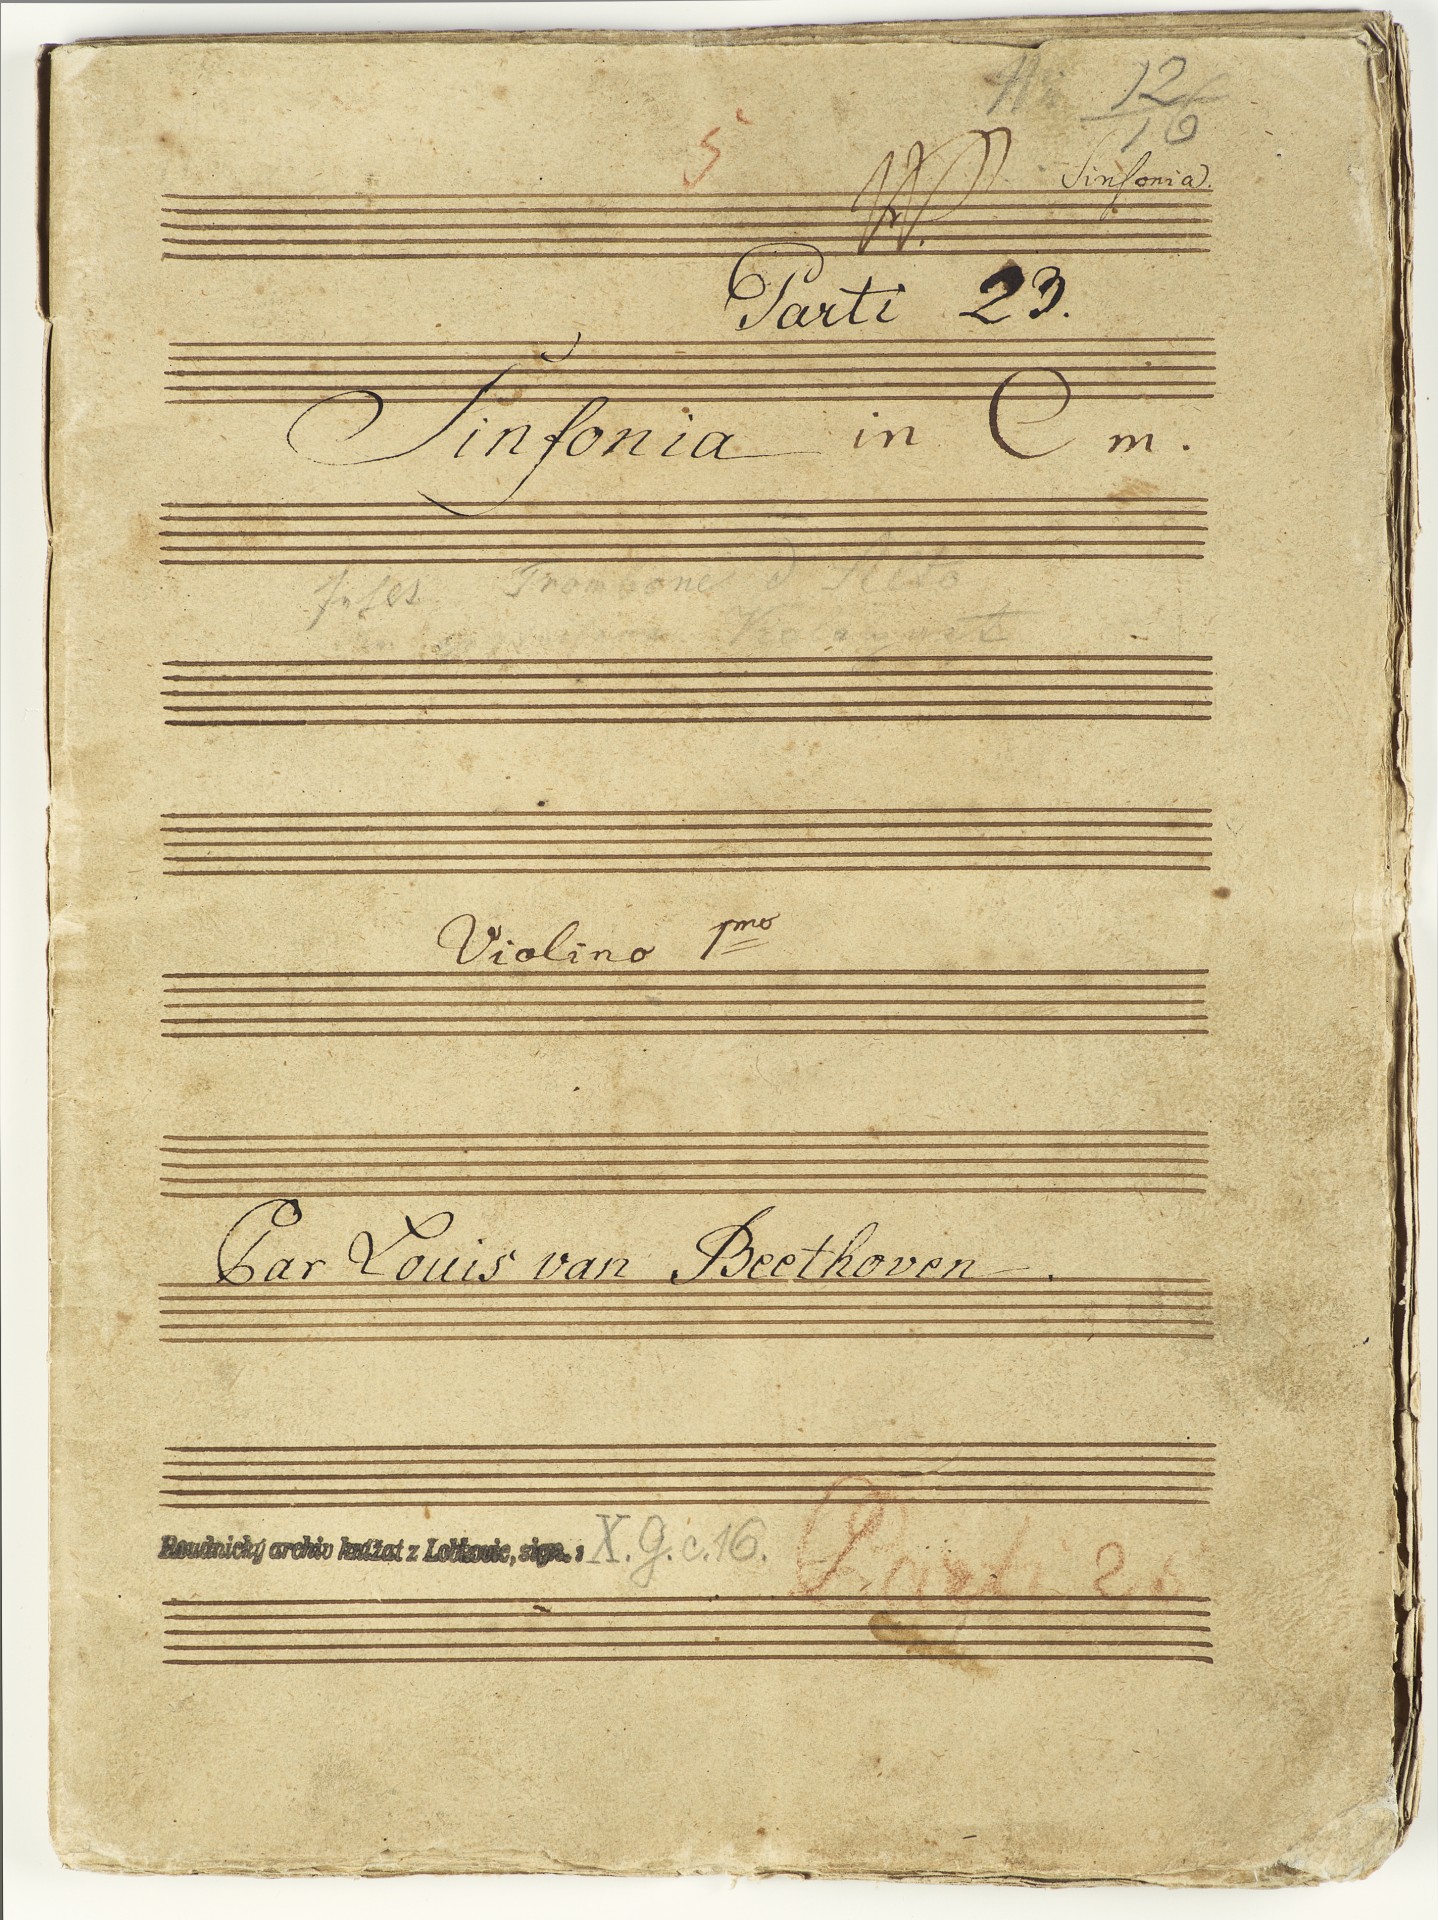 12
16
5
Sinfonia.
Parti 23.
Sinfonia in C m.
Trombone
Violino 1mo
Par Louis van Beethoven.
Roudnický archiv knížat z Lobkovic, sign.: X. G. c. 16.
Parti 23